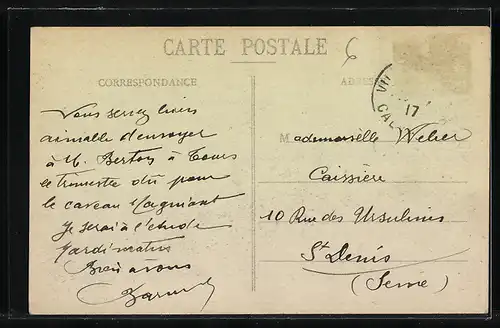 CARTE POSTALE
6
CORRESPONDANCE
ADRESSE
VIL
17
CAL
Vous seriez bien
aimable d'envoyer
à M. Berton à Tours
le trimestre dû pour
le caveau Magniant
Je serai à l'étude
Mardi matin
Bien à vous
Mademoiselle Weber
Caissière
10 Rue des Ursulines
St Denis
(Seine)